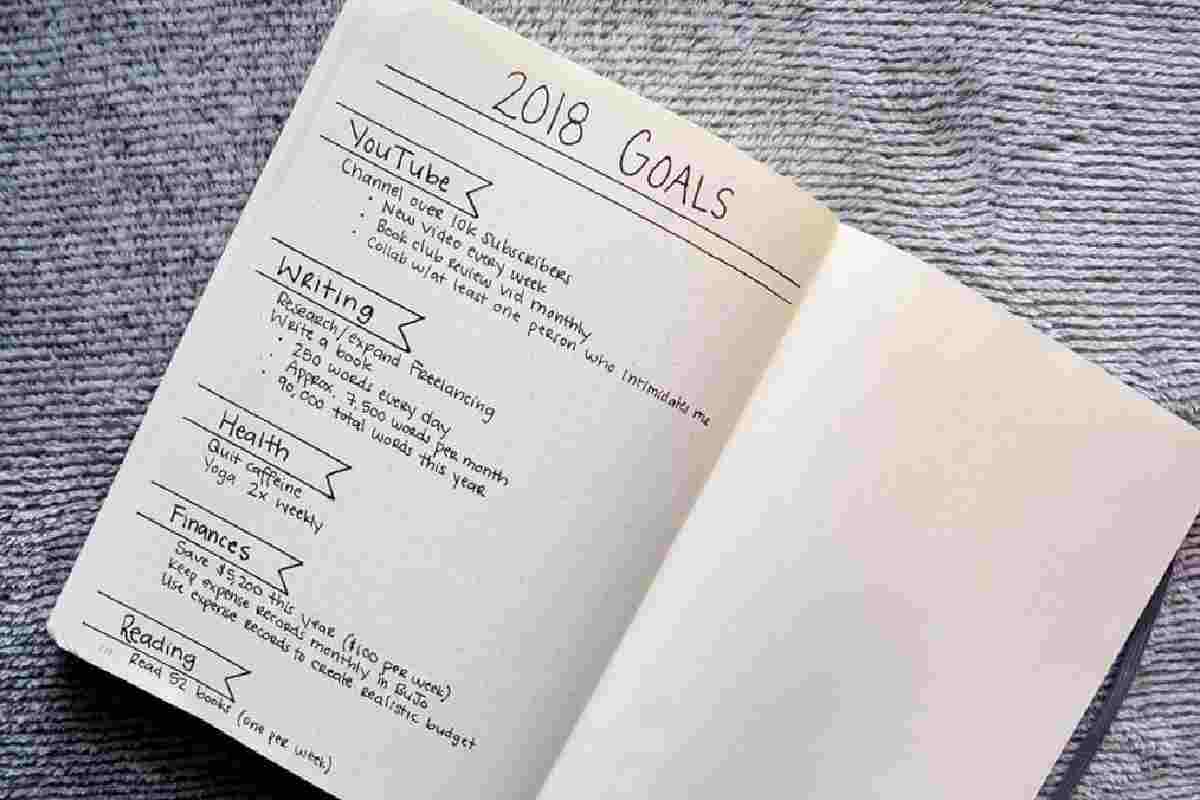 2018 GOALS
YouTube
Channel over 10K subscribers
• New video every week
• Book club review vid monthly
• Collab w/at least one person who intimidates me
Writing
Research/expand Freelancing
Write a book
• 250 words every day
• Approx. 7,500 words per month
• 90,000 total words this year
Health
Quit caffeine
Yoga 2x weekly
Finances
Save $5,200 this year ($100 per week)
Keep expense records monthly in BuJo
Use expense records to create realistic budget
Reading
Read 52 books (one per week)